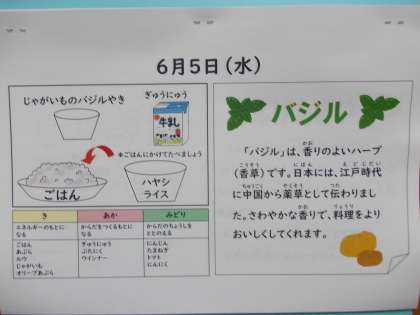 6月5日（水）
じゃがいものバジルやき
ぎゅうにゅう
牛乳
＊ごはんにかけてたべましょう
ごはん
ハヤシ
ライス
き
あか
みどり
エネルギーのもとに
なる
からだをつくるもとに
なる
からだのちょうしを
ととのえる
ごはん
あぶら
ルウ
じゃがいも
オリーブあぶら
ぎゅうにゅう
ぶたにく
ウインナー
にんじん
たまねぎ
トマト
にんにく
バジル
「バジル」は、香りのよいハーブ
（香草）です。日本には、江戸時代
に中国から薬草として伝わりまし
た。さわやかな香りで、料理をより
おいしくしてくれます。